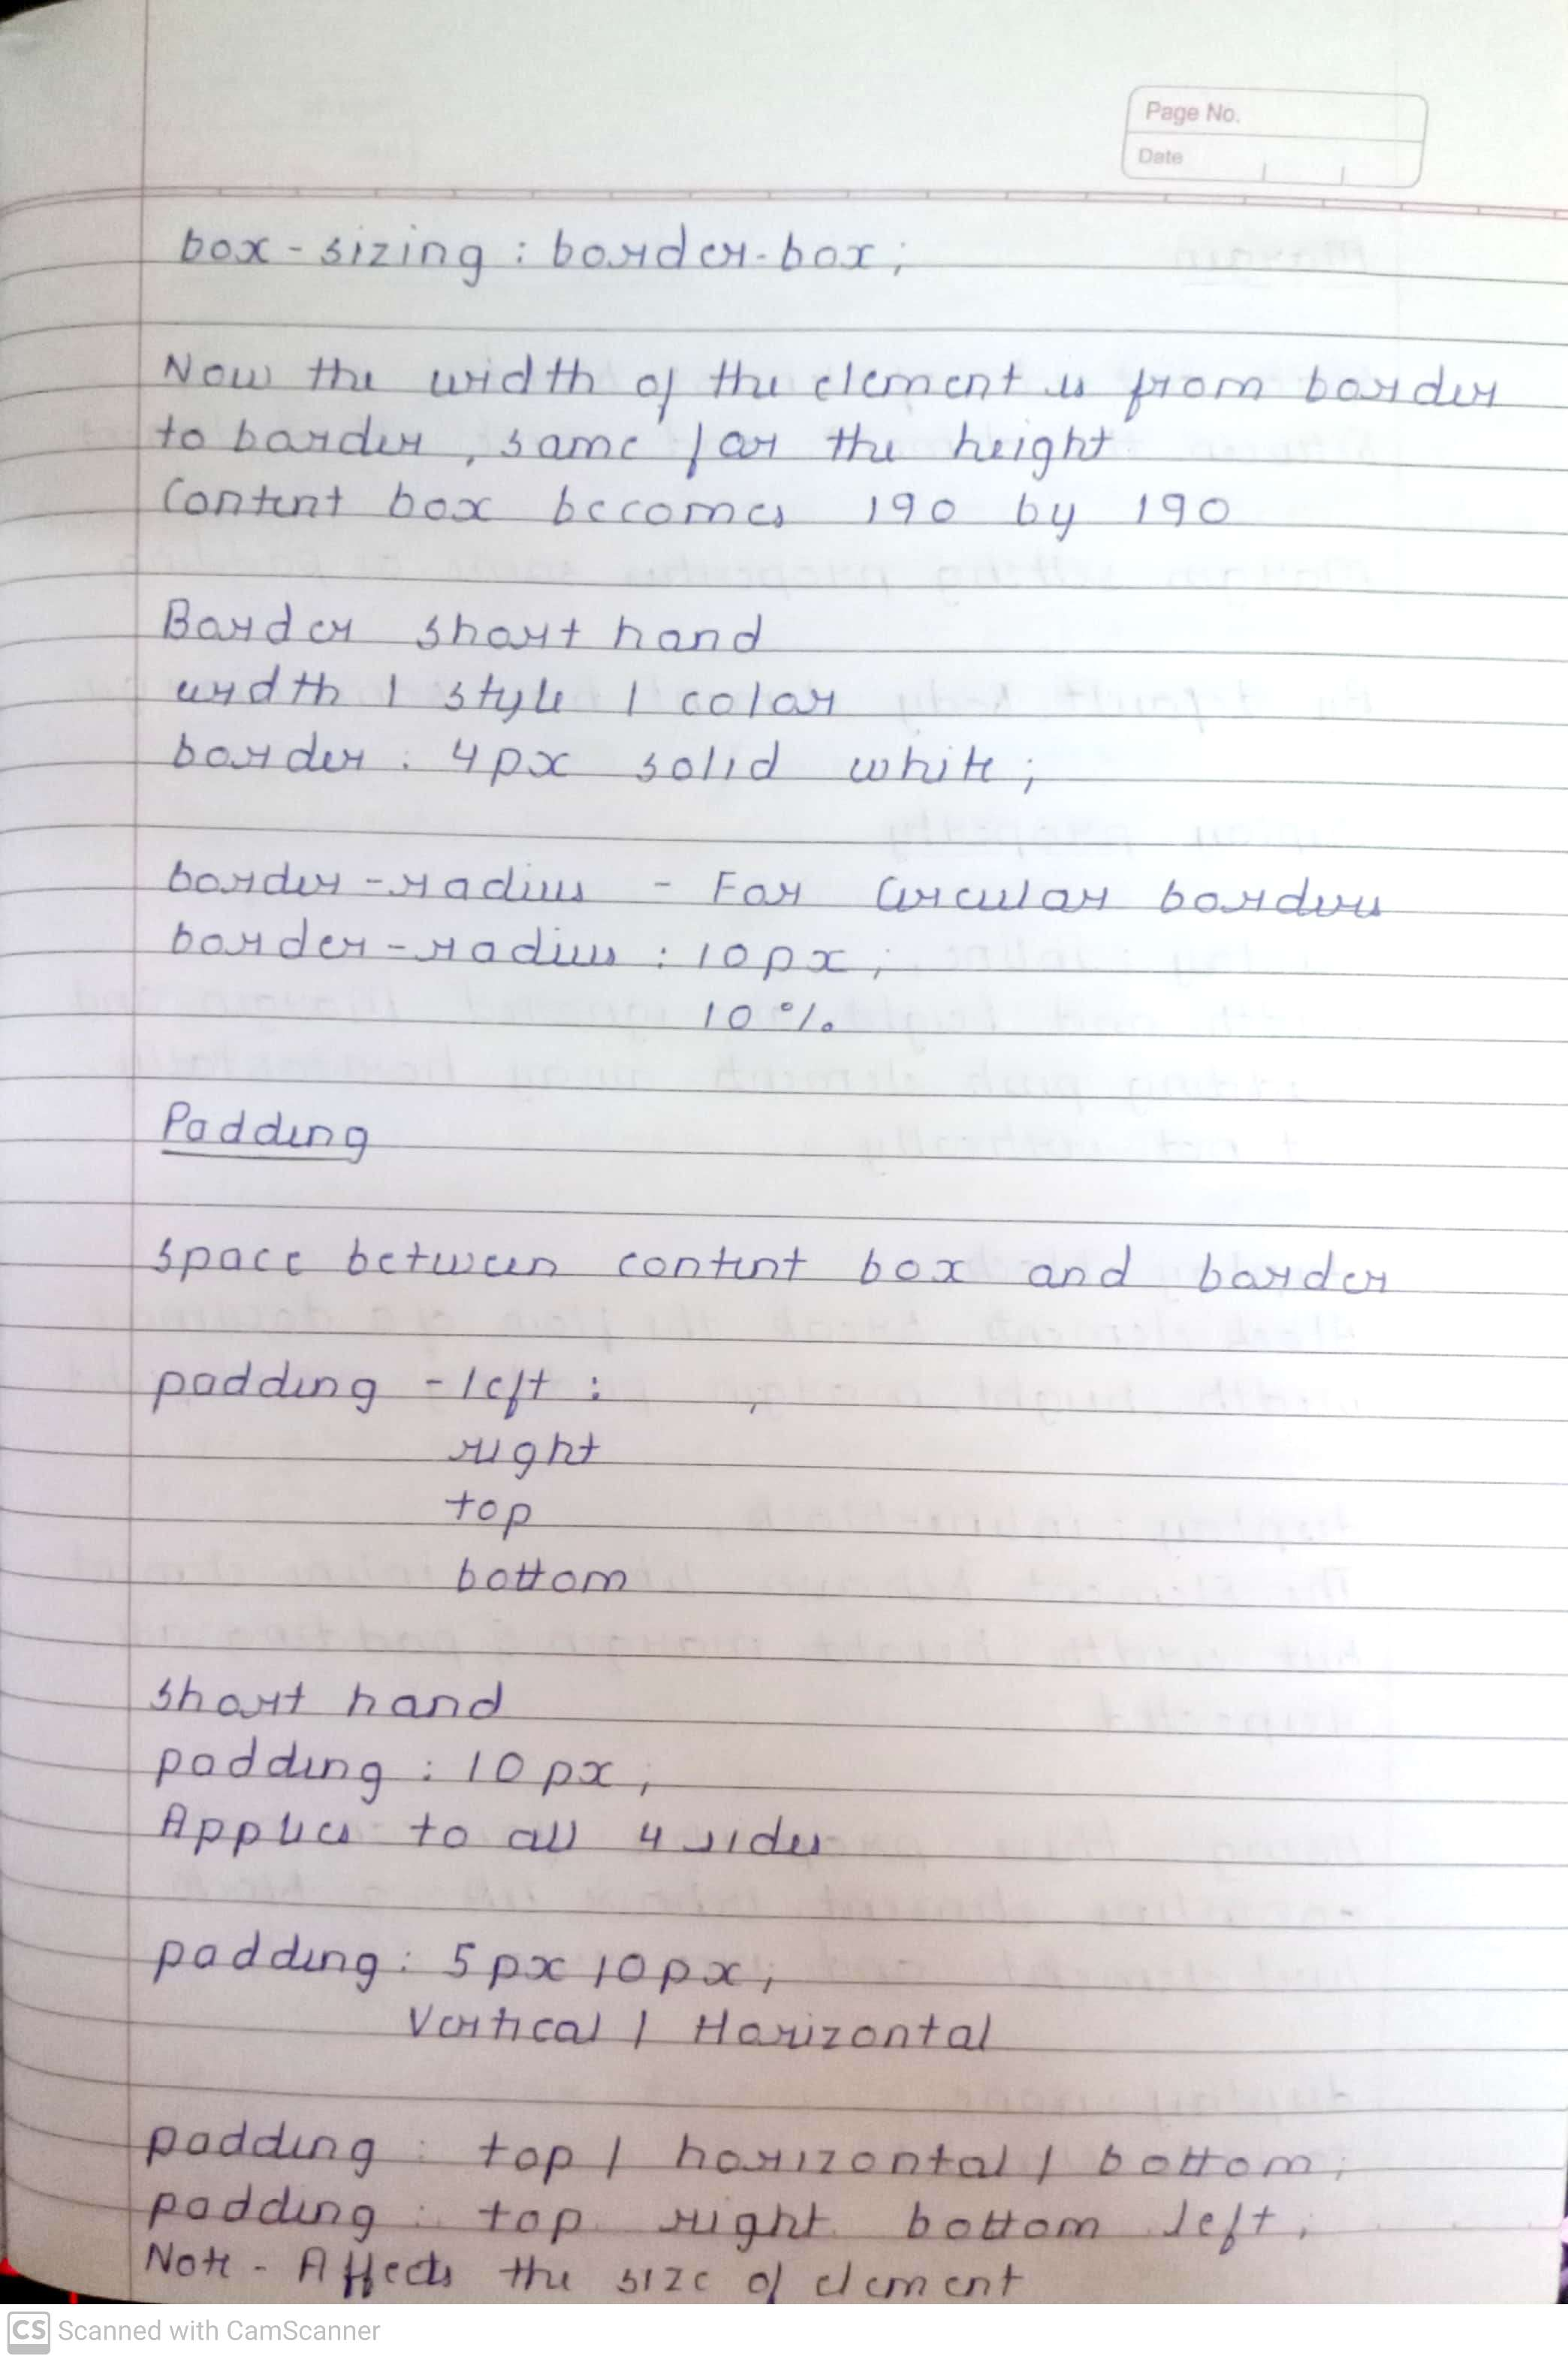 Page No.
Date
box-sizing : border-box;
Now the width of the element is from border
to border, same for the height
Content box becomes 190 by 190
Border short hand
width | style | color
border : 4px solid white;
border-radius - For Circular borders
border-radius : 10px;
10%
Padding
space between content box and border
padding -left : ;
right
top
bottom
short hand
padding : 10px;
Applies to all 4 sides
padding : 5px 10px;
Vertical | Horizontal
padding : top | horizontal | bottom;
padding : top right bottom left;
Note - Affects the size of element
CS Scanned with CamScanner